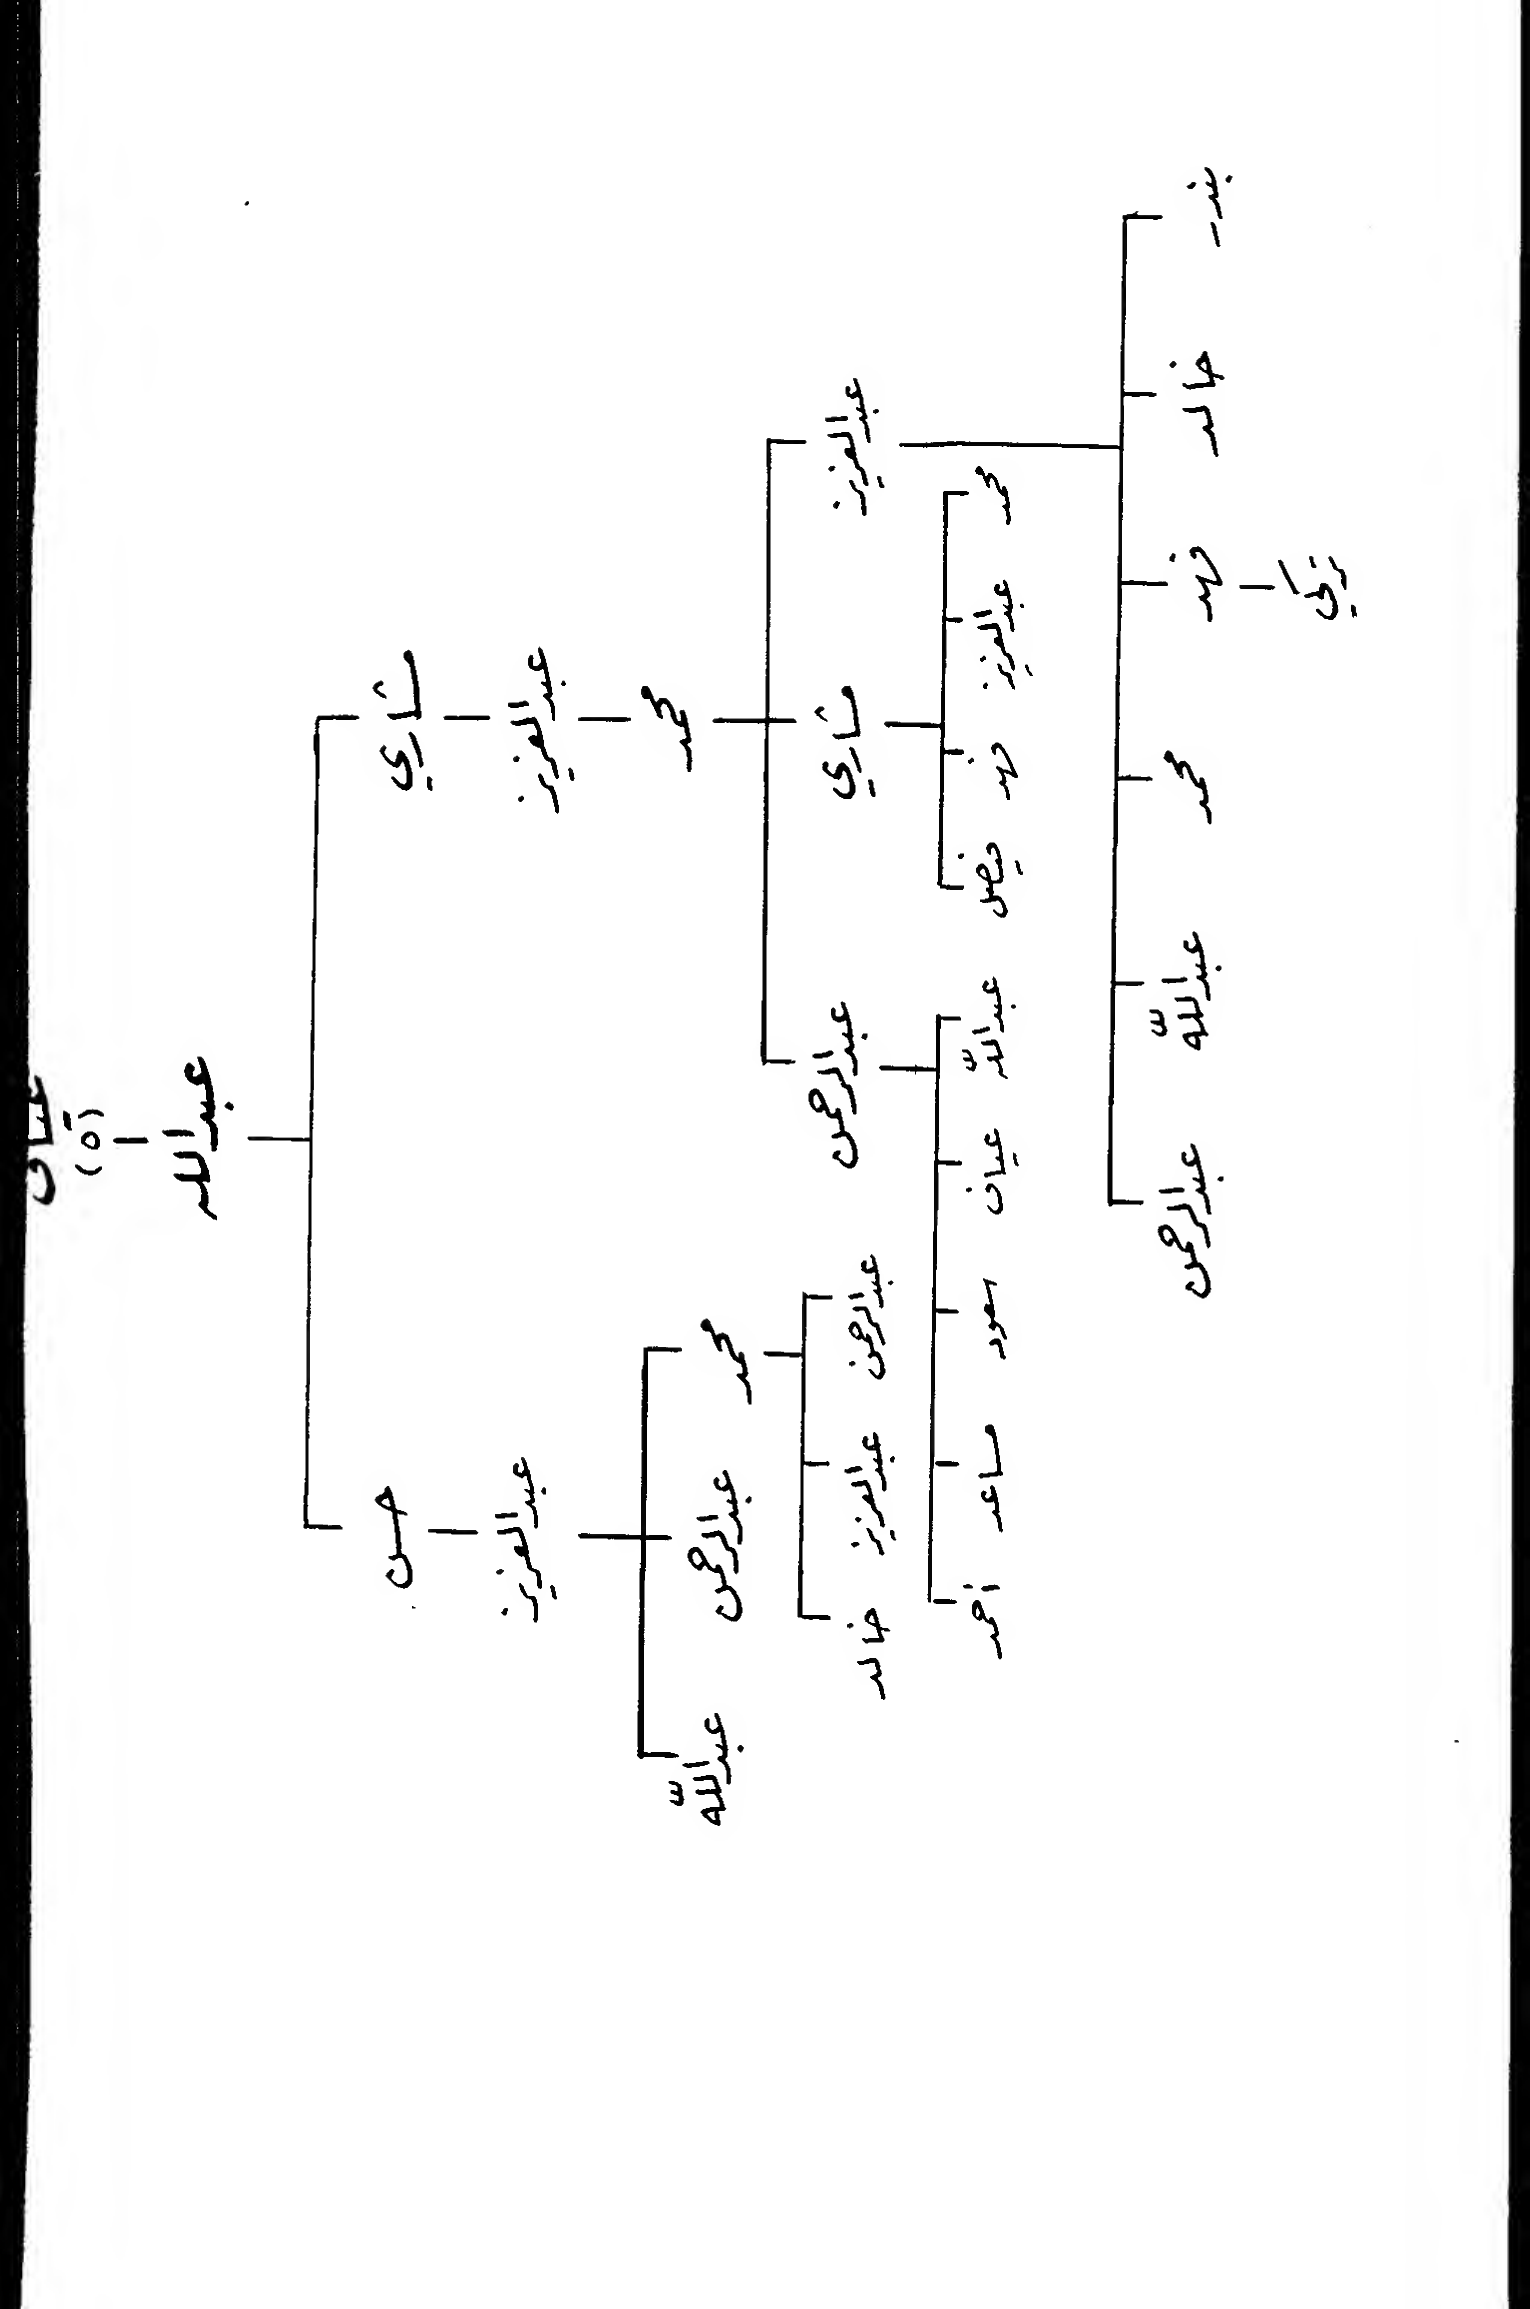 (٥)
عبدالله
مشاري
حسن
عبدالعزيز
عبدالعزيز
محمد
محمد
عبدالرحمن
عبدالله
عبدالعزيز
مشاري
عبدالرحمن
عبدالرحمن
عبدالعزيز
خالد
محمد
عبدالعزيز
فهد
فيصل
عبدالله
سعود
مساعد
أحمد
بندر
خالد
فهد
محمد
عبدالله
عبدالرحمن
تركي